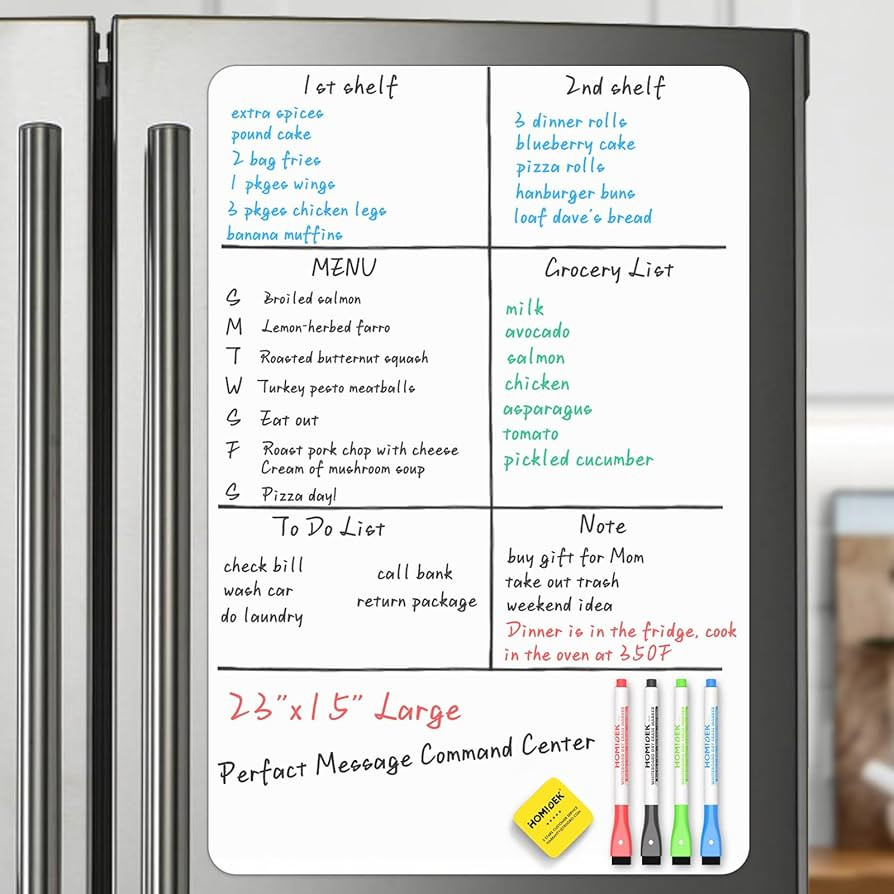 1st shelf
extra spices
pound cake
2 bag fries
1 pkges wings
3 pkges chicken legs
banana muffins
2nd shelf
3 dinner rolls
blueberry cake
pizza rolls
hanburger buns
loaf dave's bread
MENU
S Broiled salmon
M Lemon-herbed farro
T Roasted butternut squash
W Turkey pesto meatballs
S Eat out
F Roast pork chop with cheese
Cream of mushroom soup
S Pizza day!
Grocery List
milk
avocado
salmon
chicken
asparagus
tomato
pickled cucumber
To Do List
check bill
wash car
do laundry
call bank
return package
Note
buy gift for Mom
take out trash
weekend idea
Dinner is in the fridge, cook
in the oven at 350F
23"x15" Large
Perfact Message Command Center
HOMIDEK
HOMIDEK
HOMIDEK
HOMIDEK
HOMIDEK